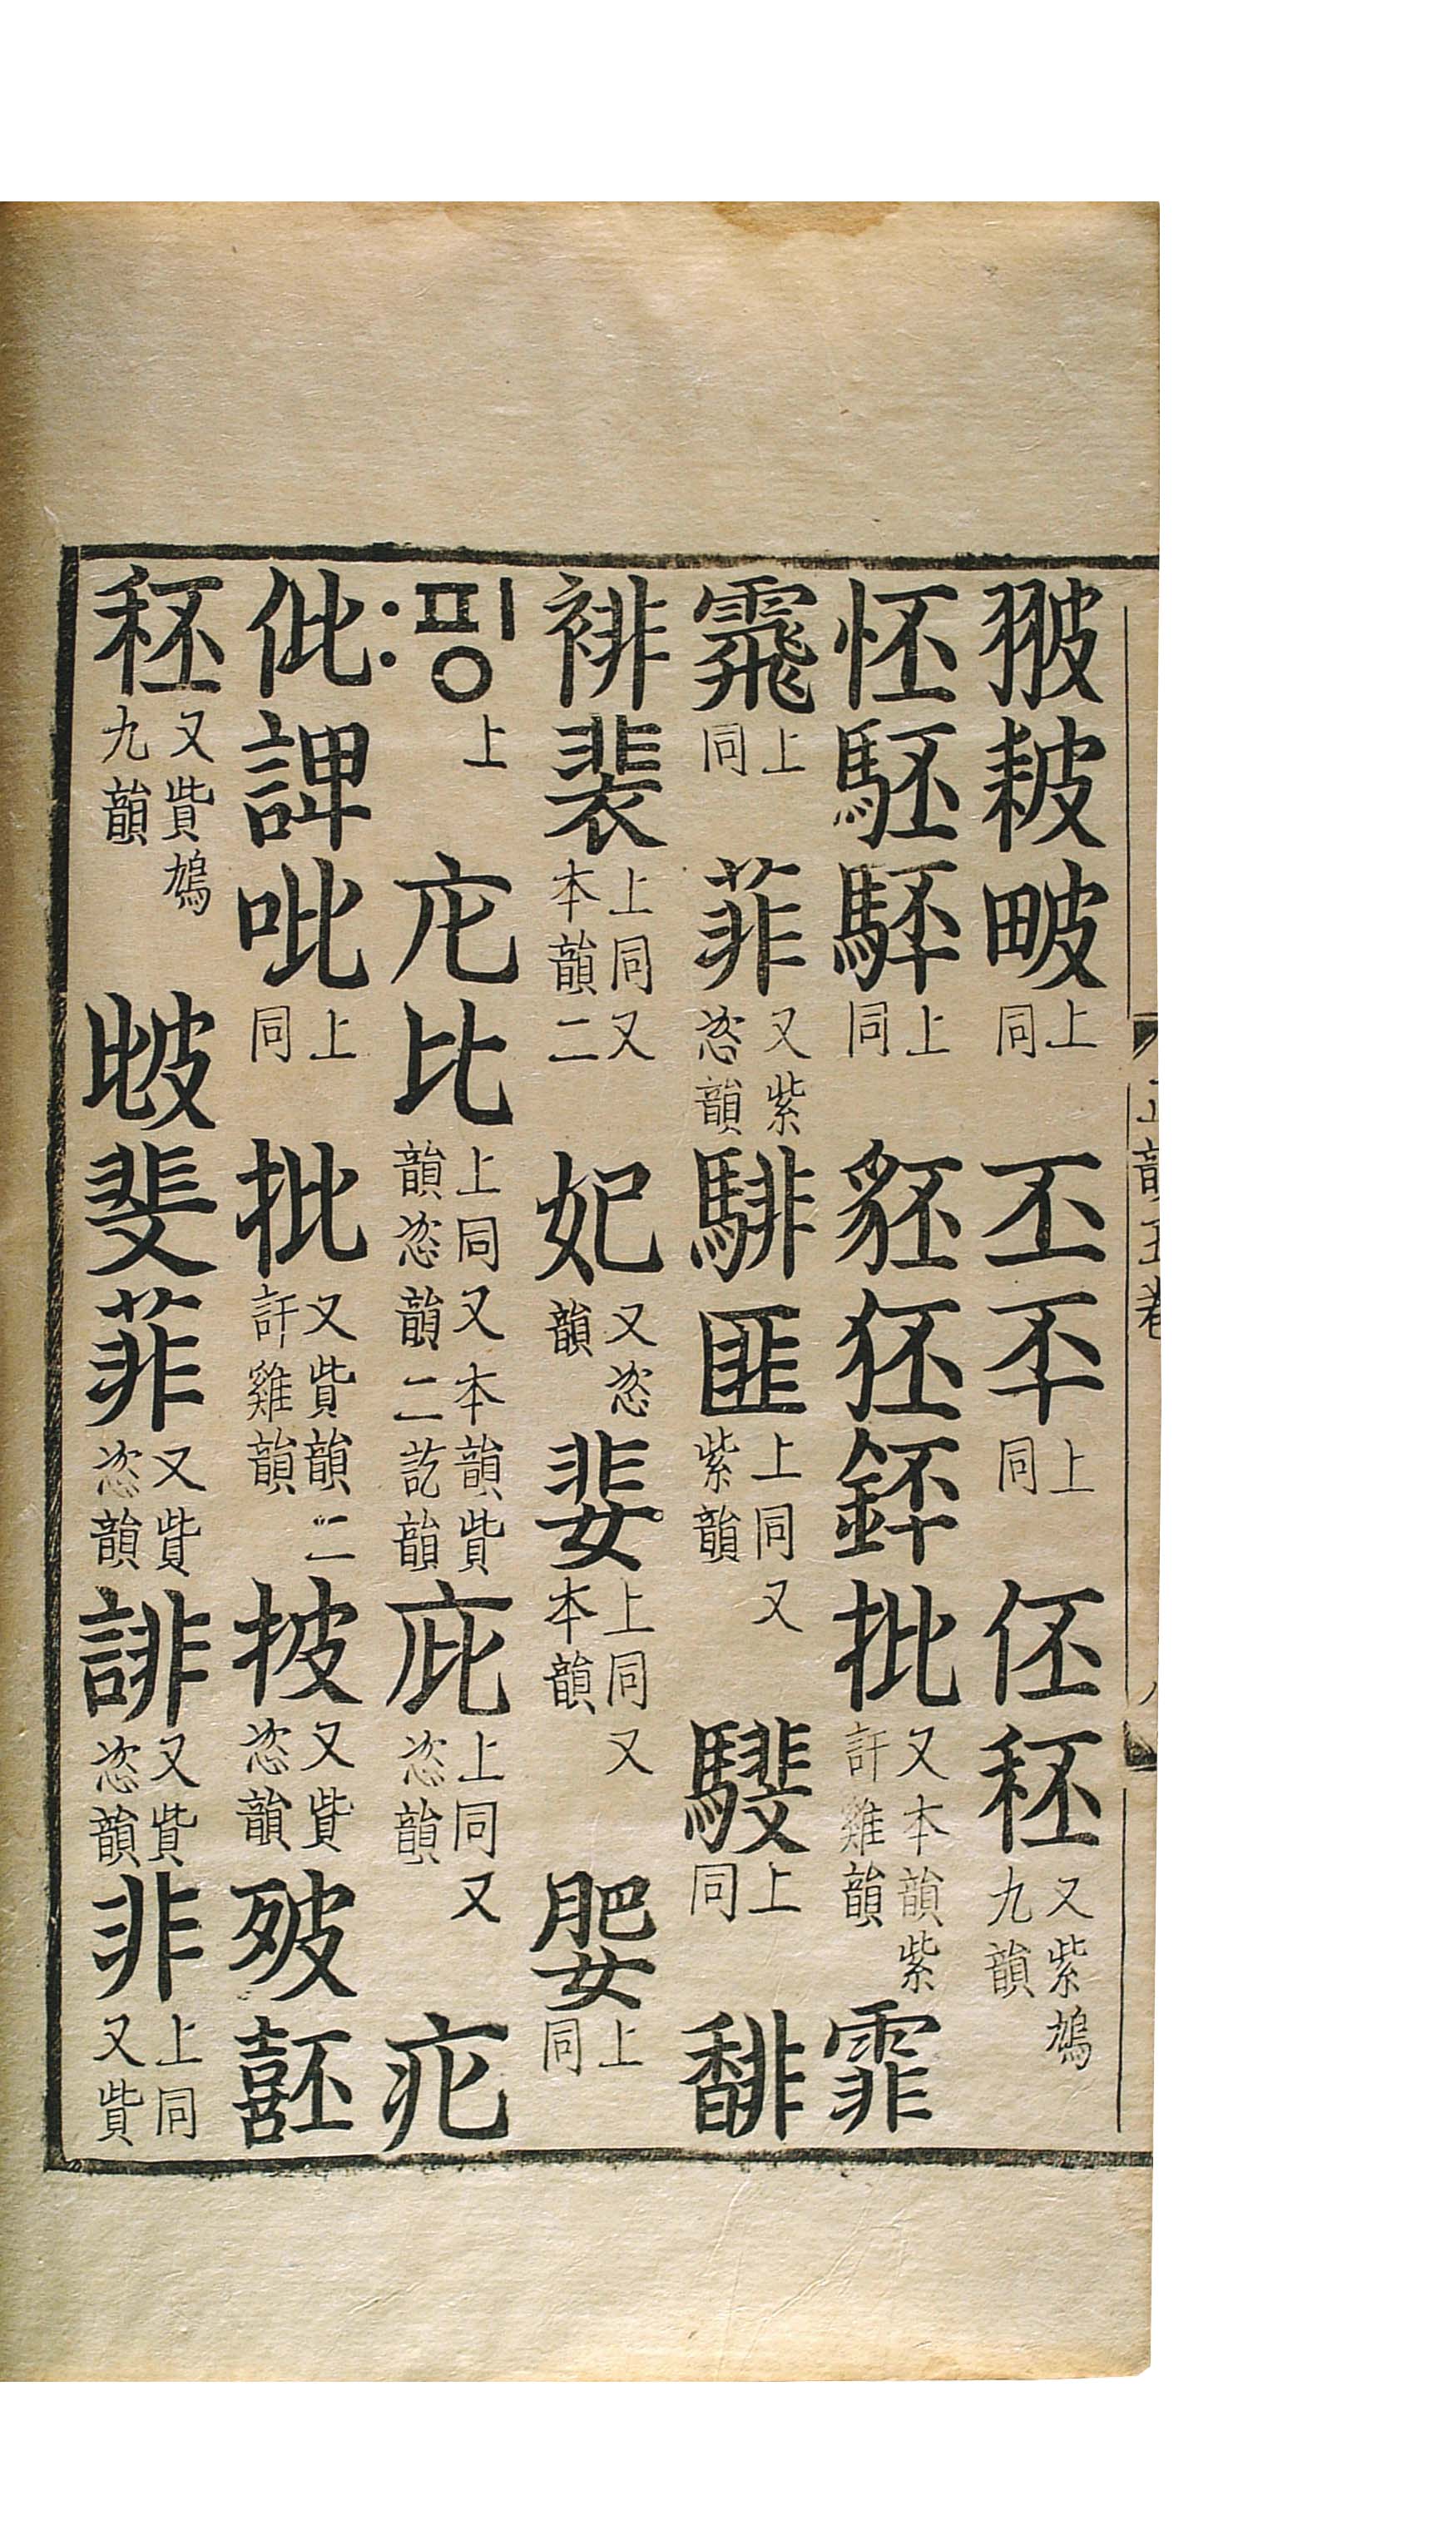 翍耚畈上同丕㔻上同伾秠又紫鳩九韻
怌駓䮆上同豾狉鉟批又本韻紫訐雞韻霏
䨽上同菲又紫恣韻騑匪上同又紫韻騛上同馡
裶裴上同又本韻二妃又恣韻婓上同又本韻䠊上同
:핑上庀比上同又本韻貲韻恣韻二訖韻庇上同又恣韻疕
仳諀吡上同批又貲韻二訐雞韻披又貲恣韻㱟嚭
秠又貲鳩九韻㱟斐菲又貲恣韻誹又貲恣韻非上同又貲
正韻五卷